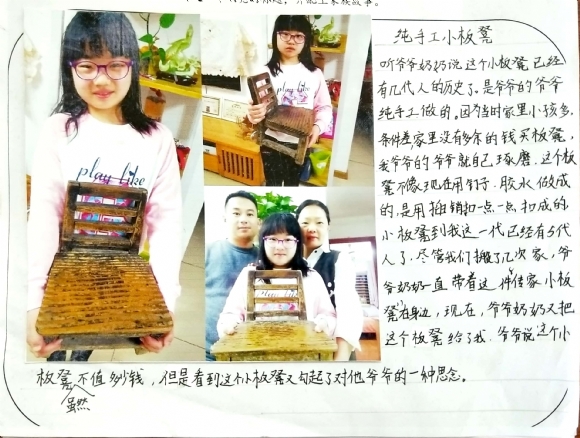 纯手工小板凳
听爷爷奶奶说这个小板凳已经
有几代人的历史了。是爷爷的爷爷
纯手工做的。因为当时家里小孩多.
条件差家里没有多余的钱买板凳,
我爷爷的爷爷就自己琢磨。这个板
凳不像现在用钉子.胶水做成
的.是用销扣一点一点扣成的
小板凳到我这一代已经有5代
人了.尽管我们搬了几次家,爷
爷奶奶一直带着这件传家小板
凳在身边,现在,爷爷奶奶又把
这个板凳给了我.爷爷说这个小
板凳不值多少钱,但是看到这个小板凳又勾起了对他爷爷的一种思念。
虽然
play like
play like